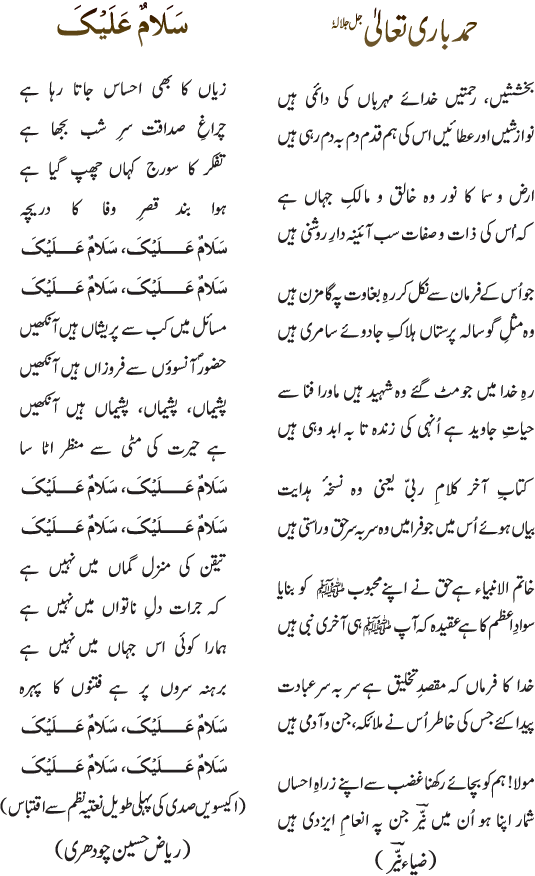 حمد باری تعالیٰ جل جلالہٗ
بخششیں، رحمتیں خدائے مہرباں کی دائمی ہیں
نوازشیں اور عطائیں اس کی ہم قدم دم بہ دم رہی ہیں
ارض و سما کا نور وہ خالق و مالکِ جہاں ہے
کہ اُس کی ذات و صفات سب آئینہ دارِ روشنی ہیں
جو اُس کے فرمان سے نکل کر رہِ بغاوت پہ گامزن ہیں
وہ مثلِ گوسالہ پرستاں ہلاکِ جادوئے سامری ہیں
رہِ خدا میں جو مٹ گئے وہ شہید ہیں ماورا فنا سے
حیاتِ جاوید ہے اُنہی کی زندہ تا بہ ابد وہی ہیں
کتابِ آخر کلامِ ربیّ یعنی وہ نسخۂ ہدایت
بیاں ہوئے اُس میں جو فرامیں وہ سربہ سر حق و راستی ہیں
خاتم الانبیاء ہے حق نے اپنے محبوب ﷺ کو بنایا
سوادِ اعظم کا ہے عقیدہ کہ آپ ﷺ ہی آخری نبی ہیں
خدا کا فرماں کہ مقصدِ تخلیق ہے سربہ سر عبادت
پیدا کئے جس کی خاطر اُس نے ملائکہ، جن و آدمی ہیں
مولا! ہم کو بچائے رکھنا غضب سے اپنے زراہِ احساں
شمار اپنا ہو اُن میں نیّرؔ جن پہ انعامِ ایزدی ہیں
(ضیاء نیّرؔ)
سَلَامٌ عَلَیْکَ
زیاں کا بھی احساس جاتا رہا ہے
چراغِ صداقت سرِ شب بجھا ہے
تفکر کا سورج کہاں چھپ گیا ہے
ہوا بند قصرِ وفا کا دریچہ
سَلَامٌ عَلَیْکَ، سَلَامٌ عَلَیْکَ
سَلَامٌ عَلَیْکَ، سَلَامٌ عَلَیْکَ
مسائل میں کب سے پریشاں ہیں آنکھیں
حضورؐ آنسوؤں سے فروزاں ہیں آنکھیں
پشیماں، پشیماں، پشیماں ہیں آنکھیں
ہے حیرت کی مٹی سے منظر اٹا سا
سَلَامٌ عَلَیْکَ، سَلَامٌ عَلَیْکَ
سَلَامٌ عَلَیْکَ، سَلَامٌ عَلَیْکَ
تیقن کی منزل گماں میں نہیں ہے
کہ جرات دلِ ناتواں میں نہیں ہے
ہمارا کوئی اس جہاں میں نہیں ہے
برہنہ سروں پر ہے فتنوں کا پہرہ
سَلَامٌ عَلَیْکَ، سَلَامٌ عَلَیْکَ
سَلَامٌ عَلَیْکَ، سَلَامٌ عَلَیْکَ
(اکیسویں صدی کی پہلی طویل نعتیہ نظم سے اقتباس)
(ریاض حسین چودھری)